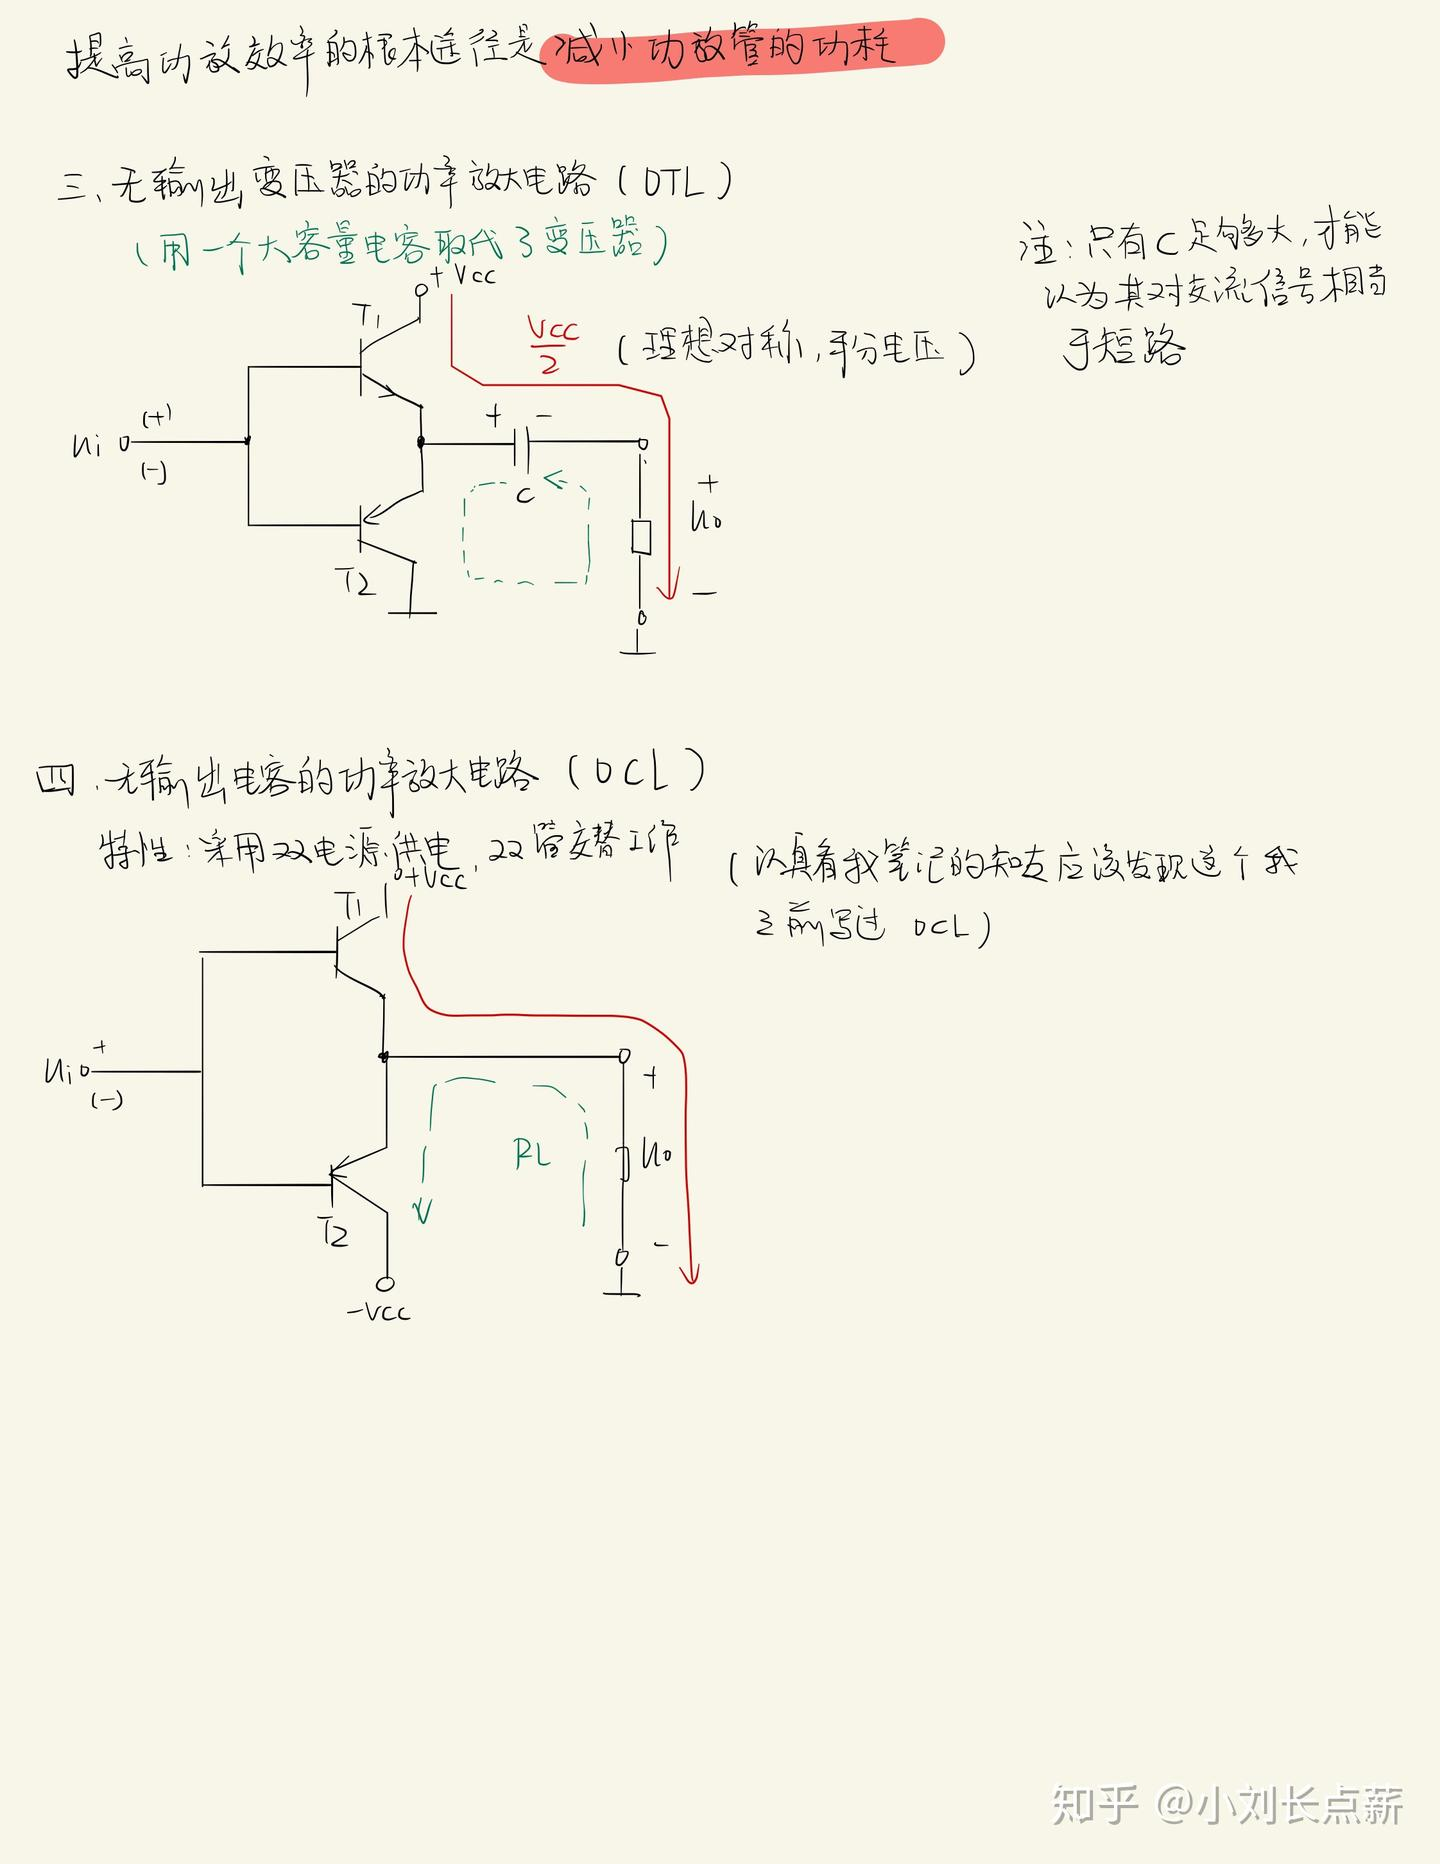 提高功放效率的根本途径是减小功放管的功耗
三、无输出变压器的功率放大电路(OTL)
(用一个大容量电容取代了变压器)
注:只有C足够大,才能
以为其对交流信号相当
于短路
+Vcc
T1
Vcc/2 (理想对称,平分电压)
(+)
ui
(-)
+ -
C
+
uo
-
T2
四.无输出电容的功率放大电路(OCL)
特性:采用双电源供电,双管交替工作
(认真看我笔记的知友应该发现这个我
之前写过 OCL)
+Vcc
T1
+
ui
(-)
+
RL
uo
-
T2
-Vcc
知乎 @小刘长点薪